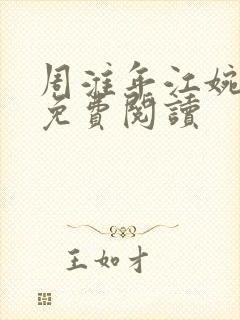 周淮年江婉
免費閱讀
王如才